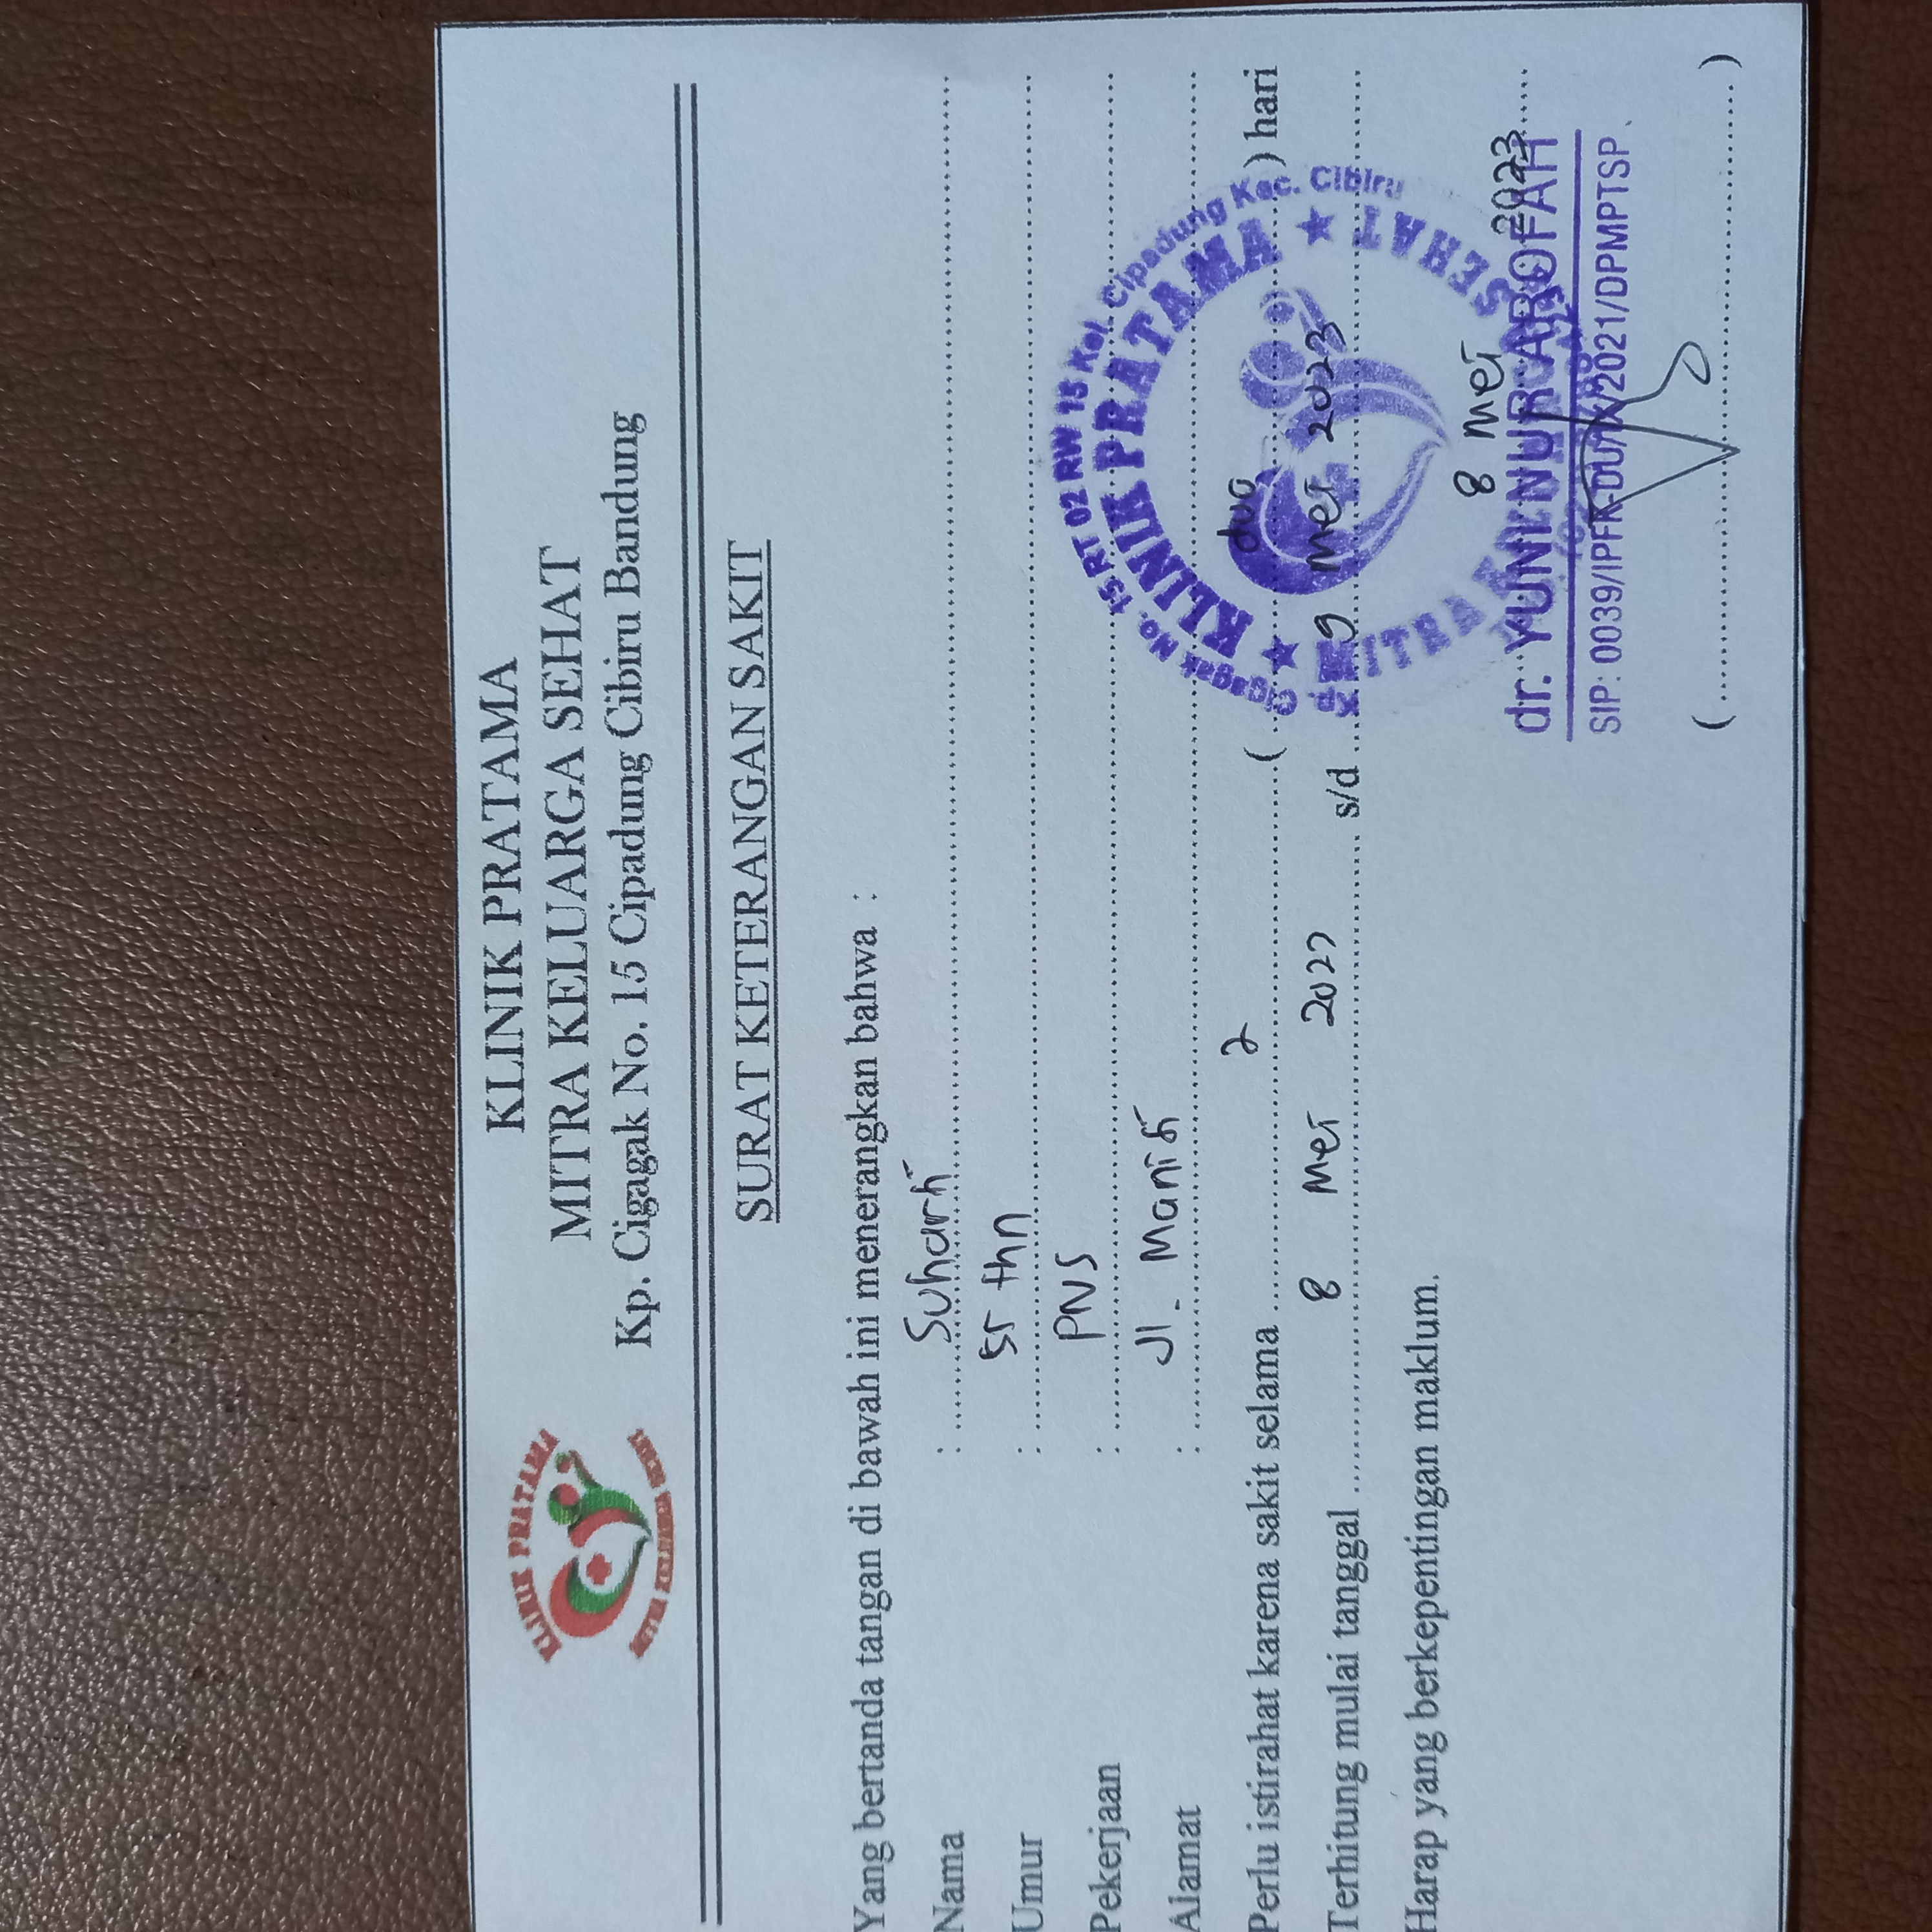 KLINIK PRATAMA
MITRA KELUARGA SEHAT
KLINIK PRATAMA
MITRA KELUARGA SEHAT
Kp. Cigagak No. 15 Cipadung Cibiru Bandung
SURAT KETERANGAN SAKIT
Yang bertanda tangan di bawah ini menerangkan bahwa :
Nama : Suharti
Umur : 55 thn
Pekerjaan : PNS
Alamat : Jl. Manisi
Perlu istirahat karena sakit selama 2 ( dua ) hari
Terhitung mulai tanggal 8 Mei 2023 s/d 9 Mei 2023
Harap yang berkepentingan maklum.
Kp. Cigagak No. 15 RT 02 RW 15 Kel. Cipadung Kec. Cibiru
KLINIK PRATAMA
MITRA KELUARGA SEHAT
8 Mei 2023
dr. YUNI NUR AROFAH
SIP: 0039/IPFK-DU/IX/2021/DPMPTSP